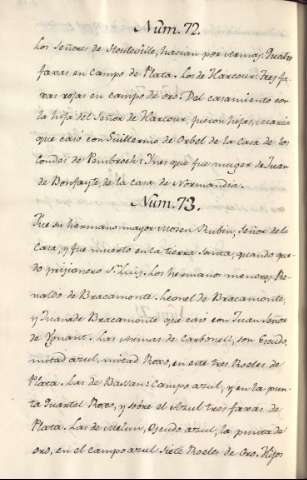 Núm. 72.
Los Señores de Stouteville, hacian por Armas, quatro
faxas en campo de Plata. Los de Harcour: tres fa-
xas rojas en campo de oro. Del casamiento con
la hija del Señor de Harcour, fueron hijos,
que casó con Guillermo de Orbol de la Casa de los
Condes de Pembrock: Ynes que fue muger de Juan
de Bonfayte, de la casa de Normandia.
Núm. 73.
Fue su hermano mayor Mosen Rubin, Señor de la
Casa, y fue muerto en la tierra santa, quando que-
dó prisionero Sn. Luis. Los hermanos menores, Rei-
naldo de Bracamonte. Leonel de Bracamonte,
y Juana de Bracamonte que casó con Juan Señor
de Yonant. Las Armas de Carbonell, son Escudo,
mitad azul, mitad Roxo, en este tres Roeles de
Plata. Las de Bassan: Campo azul, y en la pun-
ta quartel Roxo, y sobre el Azul tres faxas de
Plata. Las de Melun, Escudo azul, la punta de
oro, en el campo azul siete Roeles de Oro. Hijos